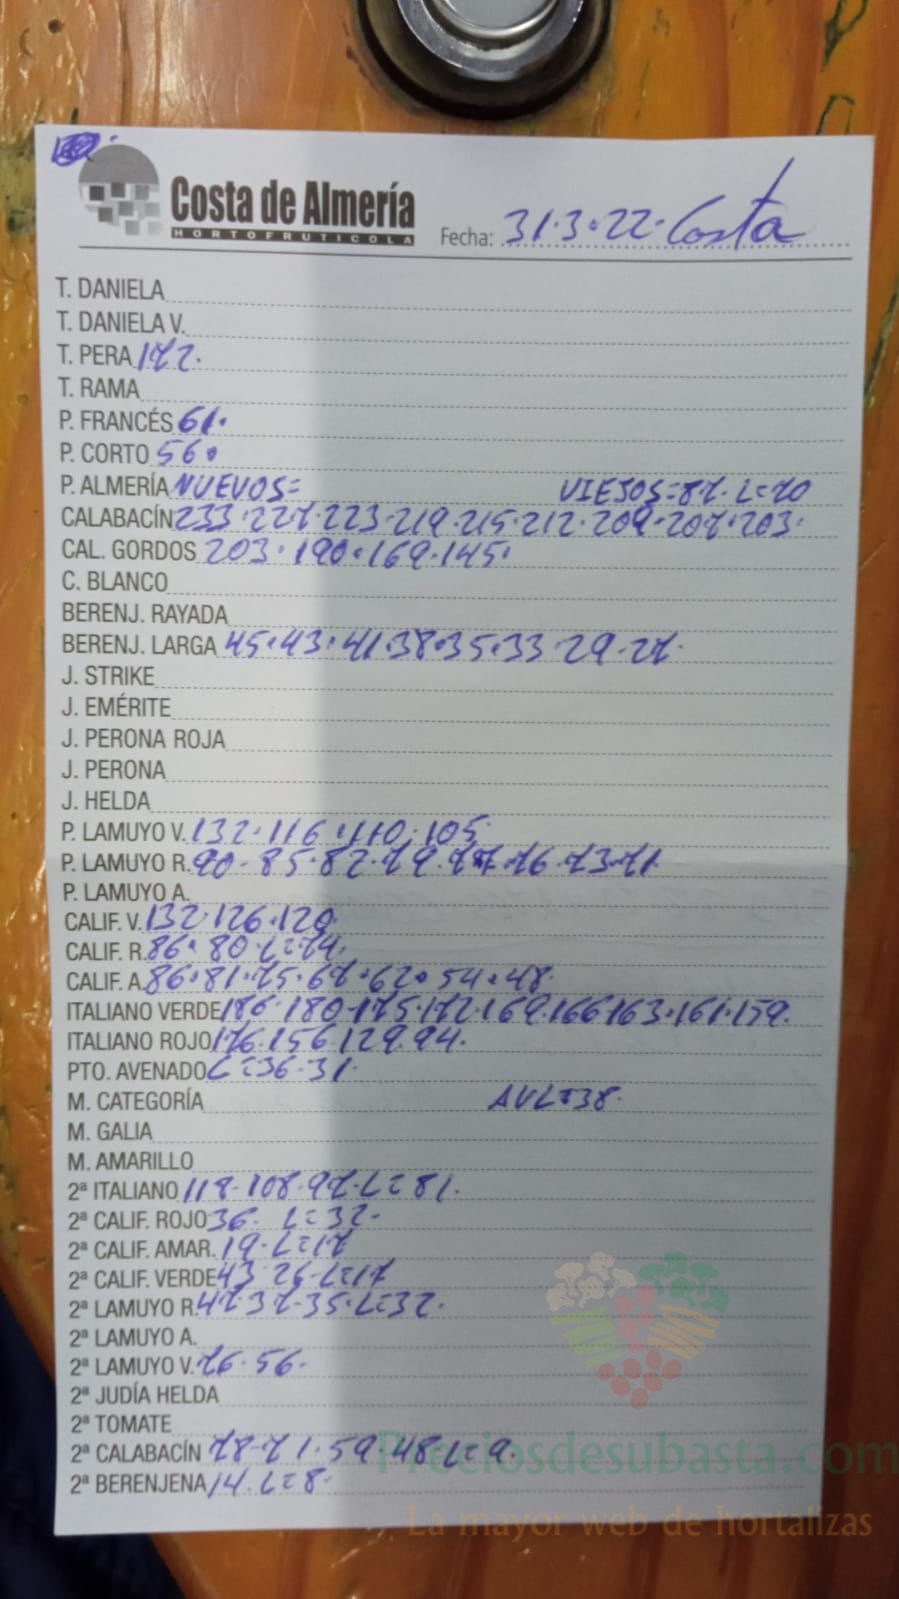 Costa de Almería
HORTOFRUTICOLA
Fecha: 31·3·22· Costa
T. DANIELA
T. DANIELA V.
T. PERA 172.
T. RAMA
P. FRANCÉS 61.
P. CORTO 56.
P. ALMERÍA NUEVOS= VIEJOS=87. L=70
CALABACÍN 233·227·223·219·215·212·209·207·203·
CAL. GORDOS 203·190·169·145·
C. BLANCO
BERENJ. RAYADA
BERENJ. LARGA 45·43·41·38·35·33·29·27·
J. STRIKE
J. EMÉRITE
J. PERONA ROJA
J. PERONA
J. HELDA
P. LAMUYO V. 132·116·110·105·
P. LAMUYO R. 90·85·82·79·77·76·73·71·
P. LAMUYO A.
CALIF. V. 132·126·120
CALIF. R. 86·80·L=74·
CALIF. A. 86·81·75·67·62·54·48·
ITALIANO VERDE 186·180·175·172·169·166·163·161·159.
ITALIANO ROJO 176·156·129·94·
PTO. AVENADO L=36·31·
M. CATEGORÍA AVL=38·
M. GALIA
M. AMARILLO
2ª ITALIANO 118·108·97·L=81.
2ª CALIF. ROJO 36· L=32·
2ª CALIF. AMAR. 19·L=17
2ª CALIF. VERDE 43 26·L=17
2ª LAMUYO R. 47·37·35·L=32·
2ª LAMUYO A.
2ª LAMUYO V. 76·56·
2ª JUDÍA HELDA
2ª TOMATE
2ª CALABACÍN 78·71·59·48·L=9.
2ª BERENJENA 14·L=8·
Preciosdesubasta.com
La mayor web de hortalizas